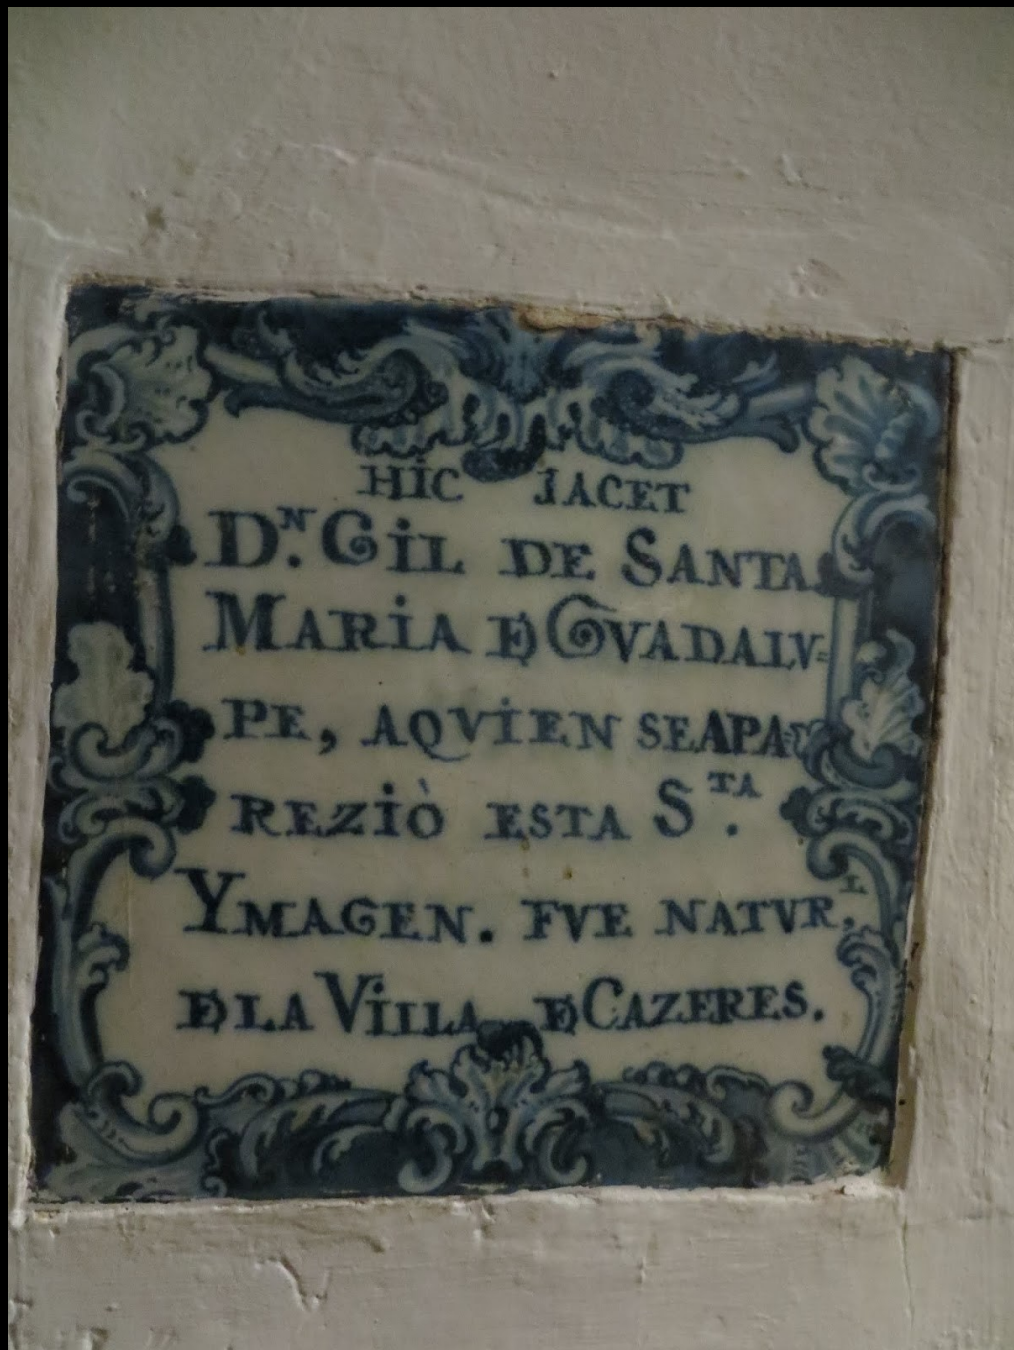 HIC JACET
D.ᴺ GIL DE SANTA
MARIA DE GVADALV=
PE, AQVIEN SEAPA=
REZIÒ ESTA S.ᵀᴬ
YMAGEN. FVE NATVR.ᴸ
DE LA VILLA DE CAZERES.